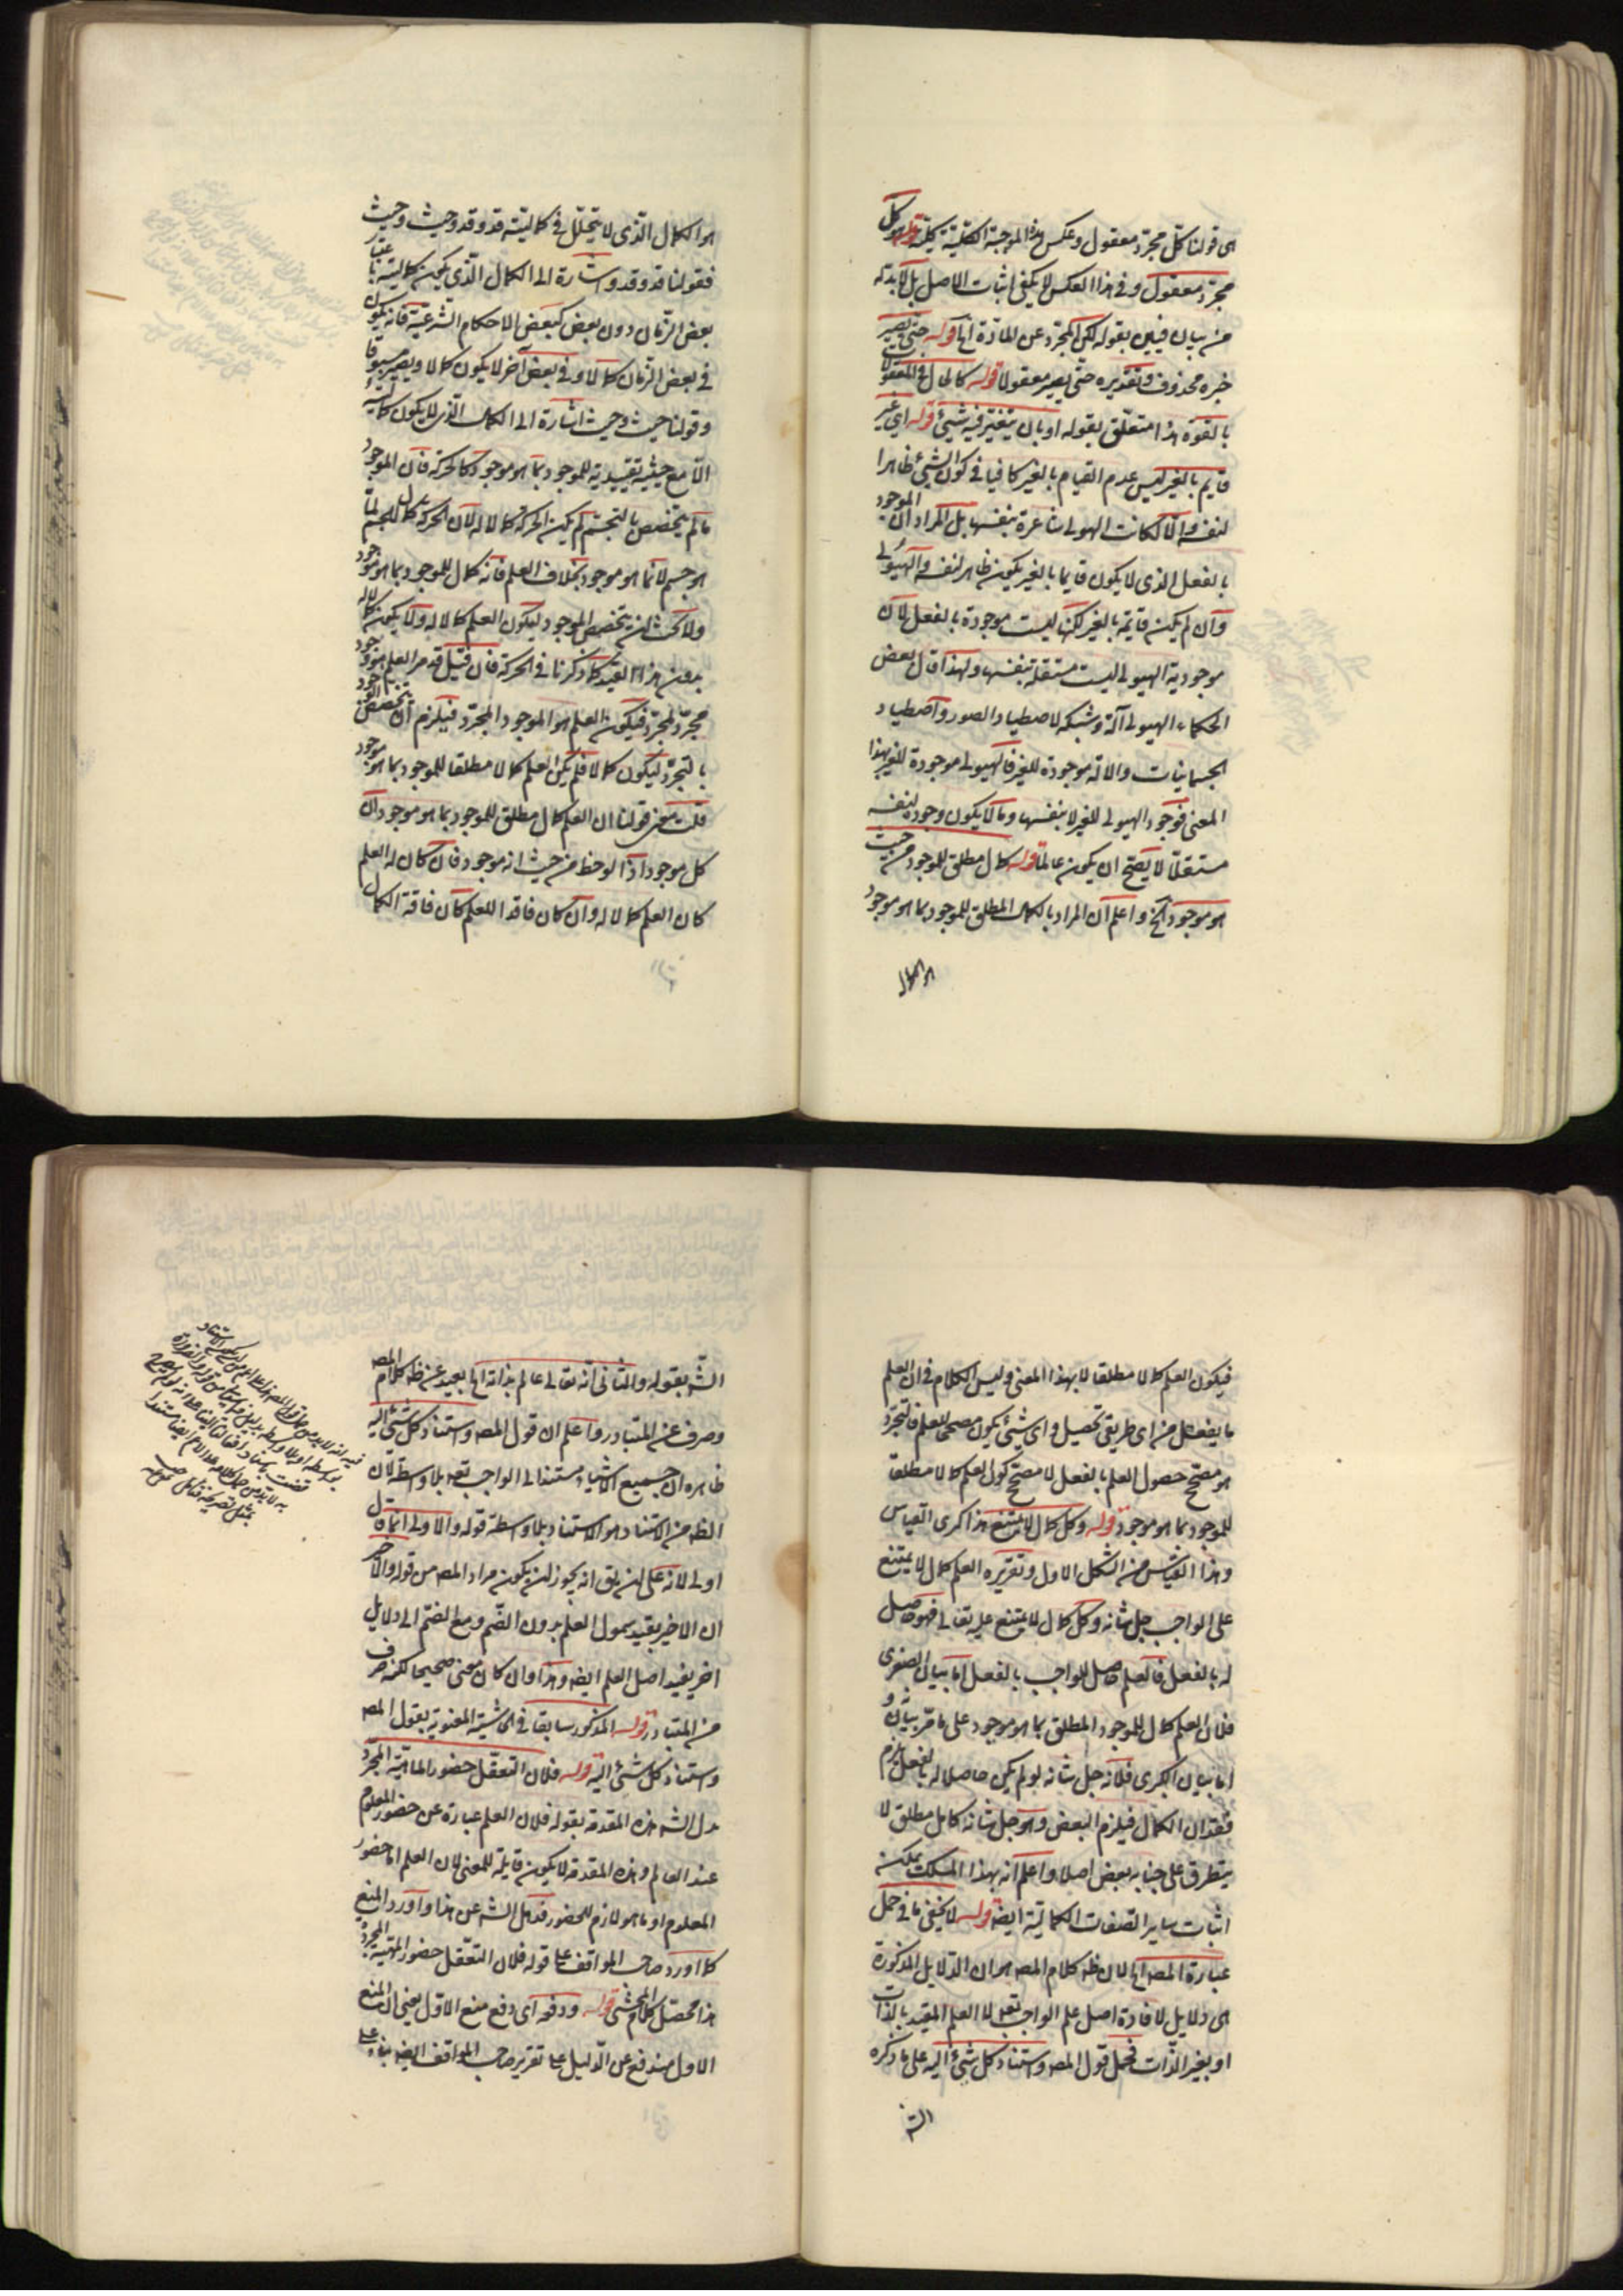 هى قولنا كل مجرد معقول وعكس هذا الموجبة الكلية كلية قولنا كل
مجرد معقول وفى هذا العكس لا يكفى اثبات الاصل بل لا بد له
من بيان فبين بقوله لكن المجرد عن المادة الخ قوله حتى يصير
خبره محذوف وتقديره حتى يصير معقولا قوله كالحال فى المعقولات
بالقوة هذا متعلق بقوله او بان يتغير فيه شئ قوله اى غير
قايم بالغير ليس عدم القيام بالغير كافيا فى كون الشئ ظاهرا
لنفسه والا لكانت الهيولى شاعرة بنفسها بل المراد ان الموجود
بالفعل الذى لا يكون قايما بالغير يكون ظاهر لنفسه والهيولى
وان لم يكن قايمة بالغير لكنها ليست موجودة بالفعل لان
موجودية الهيولى ليست مستقلة بنفسها ولهذا قال بعض
الحكماء الهيولى آلة وشبكة لاصطياد الصور واصطياد
الجسمانيات والآلة موجودة للغير فالهيولى موجودة للغير بهذا
المعنى فوجود الهيولى للغير لا بنفسها وما لا يكون وجوده لنفسه
مستقلا لا يصح ان يكون عالما قوله كمال مطلق للموجود من حيث
هو موجود الخ واعلم ان المراد بالكمال المطلق للموجود بما هو موجود
هو الكمال
هو الكمال الذى لا يتخلل فى كماليته قد وقد وحيث وحيث
فقولنا قد وقد اشارة الى الكمال الذى يكون كماليته باعتبار
بعض الزمان دون بعض كبعض الاحكام الشرعية فانه يكون
فى بعض الزمان كمالا وفى بعض آخر لا يكون كمالا ويصير مسبوقا
وقولنا حيث وحيث اشارة الى الكمال الذى لا يكون كماليته
الا مع حيثية تقييدية للموجود بما هو موجود كالحركة فان الموجود
ما لم يتخصص بالتجسم لم يكن الحركة كمالا له لان الحركة كمال للجسم بما
هو جسم لا بما هو موجود بخلاف العلم فانه كمال للموجود بما هو موجود
ولا يحتاج ان يتخصص الموجود ليكون العلم كمالا له ولا يكون كمالا له
بدون هذا القيد كما ذكرنا فى الحركة فان قيل قد مر العلم هو وجود
مجرد لمجرد فيكون العلم هو الموجود المجرد فيلزم ان يتخصص الموجود
بالتجرد ليكون كمالا فلم يكن العلم كمالا مطلقا للموجود بما هو موجود
قلت معنى قولنا ان العلم كمال مطلق للموجود بما هو موجود ان
كل موجود اذا لوحظ من حيث انه موجود فان كان له العلم
كان العلم كمالا له وان كان فاقدا للعلم كان فاقد الكمال
فيكون العلم كمالا مطلقا لا بهذا المعنى وليس الكلام فى ان العلم
ما يفعل من اى طريق تحصيل واى شئ يكون مصححا للعلم فالتجرد
هو مصحح حصول العلم بالفعل لا مصحح كون العلم كمالا مطلقا
للموجود بما هو موجود قوله وكل كمال لا يمتنع هذا كبرى القياس
وهذا القياس من الشكل الاول وتقريره العلم كمال لا يمتنع
على الواجب جل شانه وكل كمال لا يمتنع عليه تعالى فهو حاصل
له بالفعل فالعلم حاصل للواجب بالفعل اما بيان الصغرى
فلان العلم كمال للموجود المطلق بما هو موجود على ما مر بيانه و
اما بيان الكبرى فلانه جل شانه لو لم يكن حاصلا له بالفعل يلزم
فقدان الكمال فيلزم البعض وهو جل شانه كامل مطلق لا
يتطرق على جنابه بعض اصلا واعلم انه بهذا المسلك يمكن
اثبات ساير الصفات الكمالية ايضا قوله لا يخفى ما فى حمل
عبارة المصه الخ لان ظه كلام المصه هو ان الدلايل المذكورة
هى دلايل لافادة اصل علم الواجب تعه لا العلم المقيد بالذات
او بغير الذات فحمل قول المصه واستناد كل شئ اليه على ما ذكره
الشه
الشه بقوله والثانى انه تعالى عالم بذاته الخ بعيد عن ظه كلام المصه
وصرف عن المتبادر واعلم ان قول المصه واستناد كل شئ اليه
ظاهره ان جميع الاشياء مستندا الى الواجب تعه بلا واسطة لان
الظه من الاستناد هو الاستناد بلا واسطة قوله والاولى انما قال
اولى لانه على ان يق انه يجوز ان يكون مراد المصه من قوله والاخير
ان الاخير يقيد بمول العلم بدون الضم ومع الضم الى دلايل
اخر يفيد اصل العلم ايضه وهذا وان كان معنى صحيحا لكنه صرف
من المتبادر قوله المذكور سابقا فى الحاشية المعنونة بقول المصه
واستناد كل شئ اليه قوله فلان التعقل حضور الماهية المجرد
بدل الشه هذه المقدمة بقوله فلان العلم عبارة عن حضور المعلوم
عند العالم وهذه المقدمة لا يكون قابلة للمعنى لان العلم اما حضور
المعلوم او ما هو لازم للحضور فدل الشه عن هذا واورد المنع
كما اورد صاحب المواقف على قوله فلان التعقل حضور الماهية المجرد
هذا محصل كلام المحشى قوله ودفعه اى دفع منع الاول يعنى ان المنع
الاول مندفع عن الدليل على تقرير صاحب المواقف ايضه بناء على